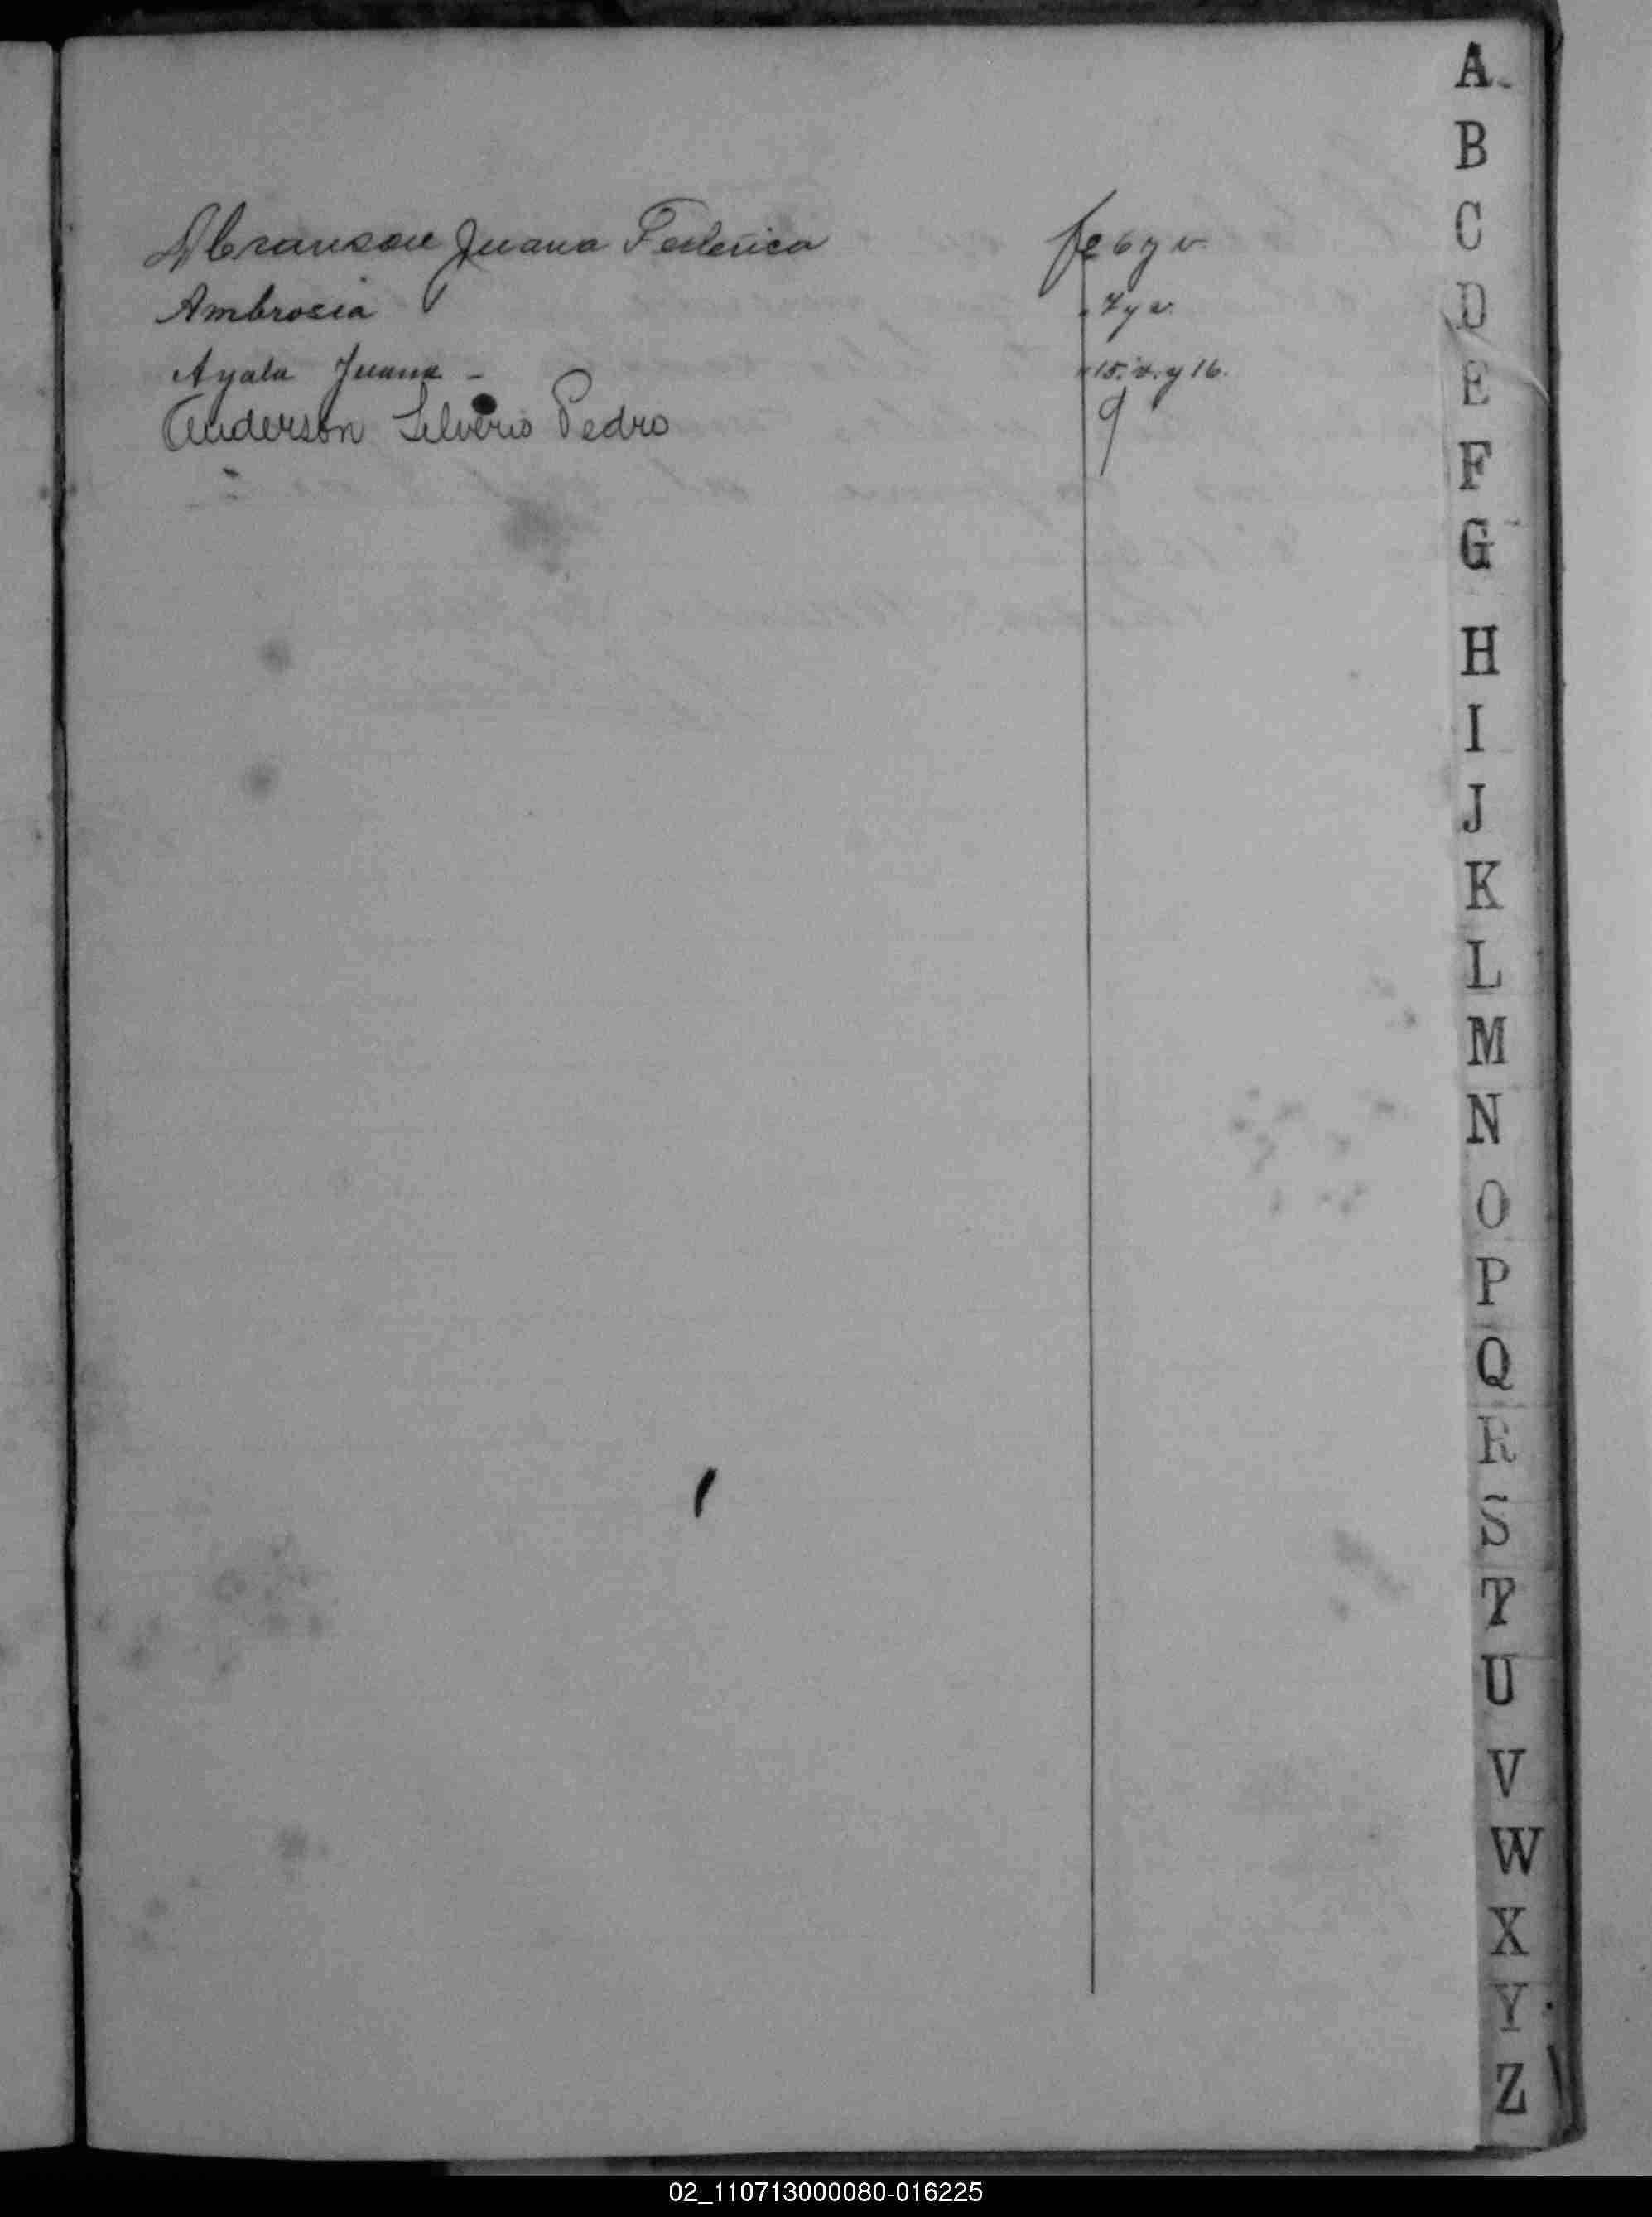 Abranson Juana Federica fs 6 y v.
Ambrosia " 7 y v.
Ayala Juana - " 15. v. y 16.
Anderson Silverio Pedro 9
A
B
C
D
E
F
G
H
I
J
K
L
M
N
O
P
Q
R
S
T
U
V
W
X
Y
Z
02_110713000080-016225